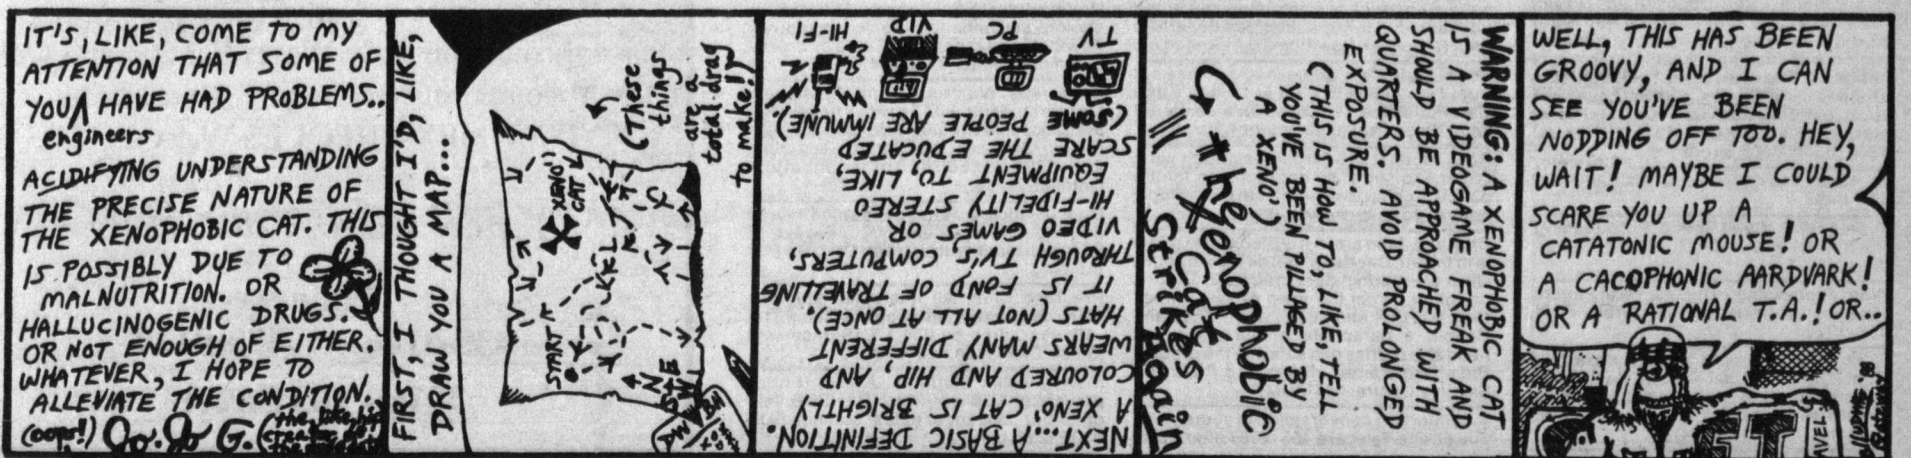 IT'S, LIKE, COME TO MY
ATTENTION THAT SOME OF
YOU HAVE HAD PROBLEMS..
engineers
ACIDIFYING UNDERSTANDING
THE PRECISE NATURE OF
THE XENOPHOBIC CAT. THIS
IS POSSIBLY DUE TO
MALNUTRITION. OR
HALLUCINOGENIC DRUGS.
OR NOT ENOUGH OF EITHER.
WHATEVER, I HOPE TO
ALLEVIATE THE CONDITION.
(oops!)
FIRST, I THOUGHT I'D, LIKE,
DRAW YOU A MAP...
(These
things
are a
total drag
to make!)
XENO'
CAT
START
N
S
E
W
NEXT...A BASIC DEFINITION.
A XENO' CAT IS BRIGHTLY
COLOURED AND HIP, AND
WEARS MANY DIFFERENT
HATS (NOT ALL AT ONCE).
IT IS FOND OF TRAVELLING
THROUGH TV'S, COMPUTERS,
VIDEO GAMES, OR
HI-FIDELITY STEREO
EQUIPMENT TO, LIKE,
SCARE THE EDUCATED
(SOME PEOPLE ARE IMMUNE).
TV
PC
VID
HI-FI
WARNING: A XENOPHOBIC CAT
IS A VIDEOGAME FREAK AND
SHOULD BE APPROACHED WITH
QUARTERS. AVOID PROLONGED
EXPOSURE.
(THIS IS HOW TO, LIKE, TELL
YOU'VE BEEN PILLAGED BY
A XENO')
the Xenophobic
Cat
Strikes
Again
WELL, THIS HAS BEEN
GROOVY, AND I CAN
SEE YOU'VE BEEN
NODDING OFF TOO. HEY,
WAIT! MAYBE I COULD
SCARE YOU UP A
CATATONIC MOUSE! OR
A CACOPHONIC AARDVARK!
OR A RATIONAL T.A.! OR..